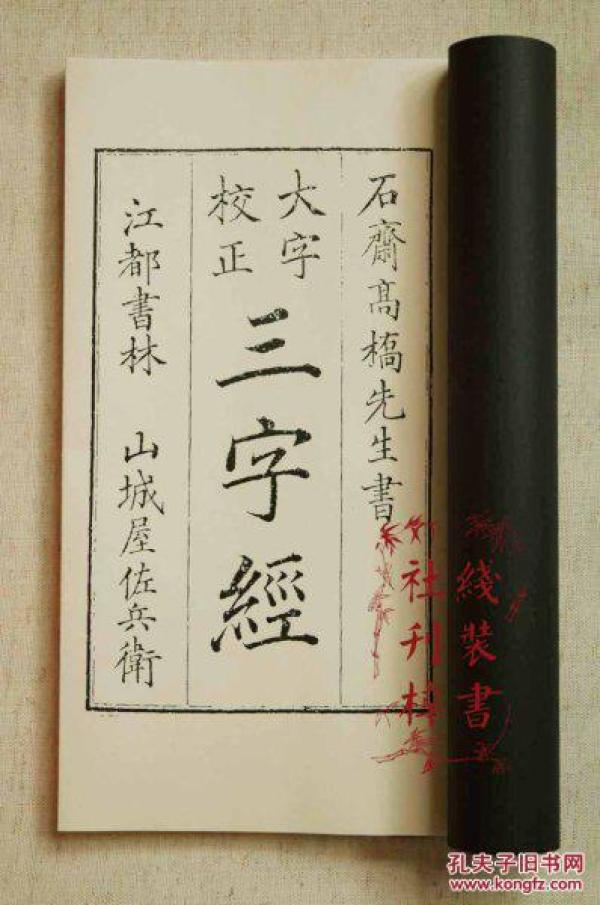 石齋髙橋先生書
大字
校正
三字經
江都書林 山城屋佐兵衛
綫裝書
社刊
孔夫子旧书网
www.kongfz.com